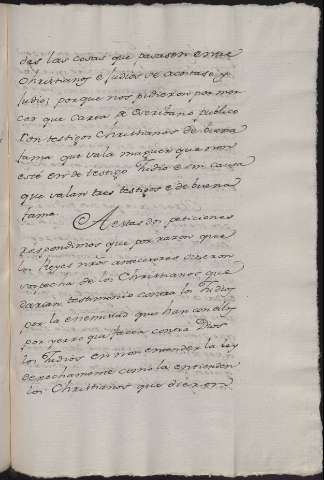 das las cosas que pasasen entre
Christianos e Judios se acotase y
Judio; porque nos pidieron por mer
cer que carta de escribano publico
con testigos Christianos de buena
fama que vala maguer que non
esté en de testigo Judio e sin causa
que valan tres testigos é de buena
fama. A estas dos peticiones
respondimos que por razon que
los Reyes nros antecesores dieron
sospecha de los Christianos que
darian testimonio contra los Judios
por la enemistad que han con ellos
por yerro que facen contra Dios
los Judios en non entender la ley
derechamente como la entienden
los Christianos que dieron